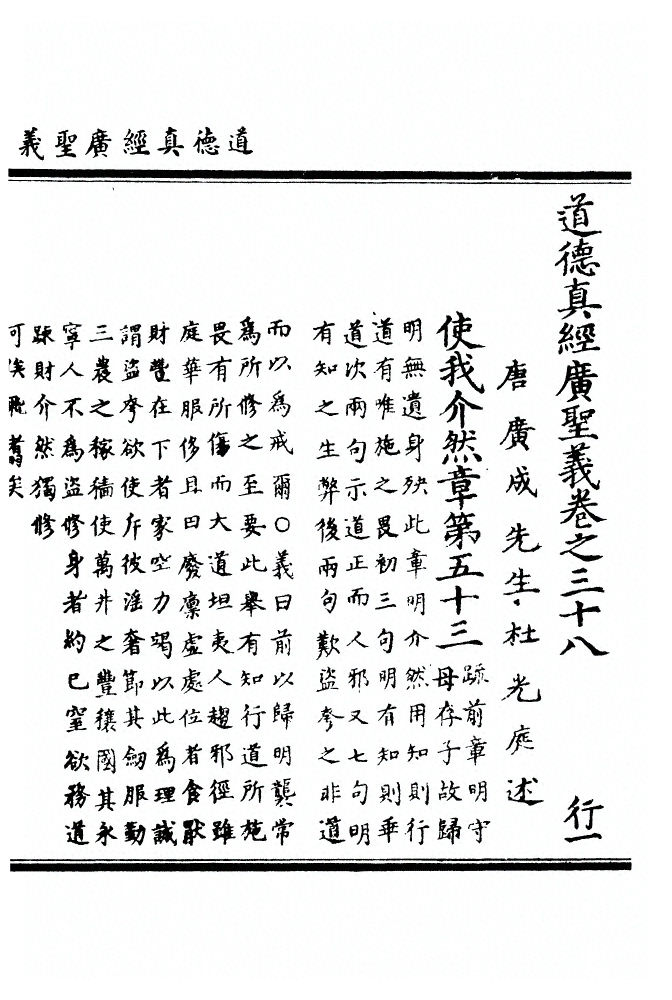 道德真經廣聖義
道德真經廣聖義卷之三十八 行一
唐廣成先生杜光庭述
使我介然章第五十三 疏前章明守
母存子故歸
明無遺身殃此章明介然用知則行
道有唯施之畏初三句明有知則乖
道次兩句示道正而人邪又七句明
有知之生弊後兩句歎盜夸之非道
而以為戒爾○義曰前以歸明襲常
為所修之至要此舉有知行道所施
畏有所傷而大道坦夷人趨邪徑雖
庭華服侈且曰廢廩虛處位者食猒
財豐在下者家空力竭以此為理誠
謂盜夸欲使斥彼淫奢節其劒服勤
三農之稼穡使萬井之豐穰國其永
寧人不為盜修身者約己窒欲務道
踈財介然獨修
可俟矣